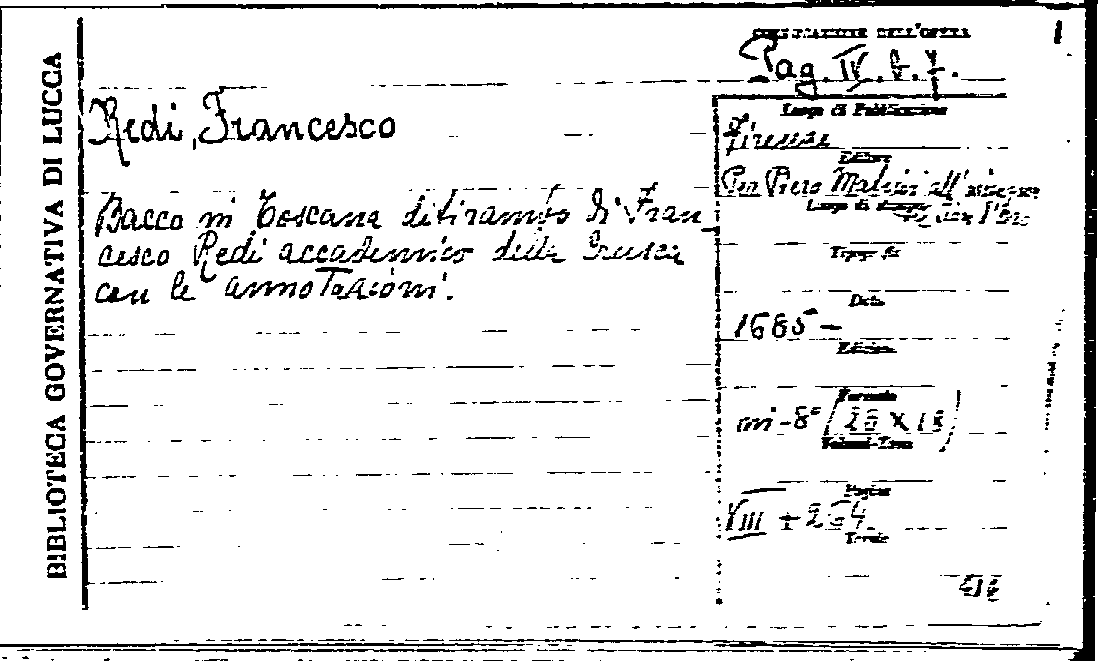 BIBLIOTECA GOVERNATIVA DI LUCCA
COLLOCAZIONE DELL'OPERA
Pag. IV. b. 7.
Redi, Francesco
Bacco in Toscana ditirambo di Fran
cesco Redi accademico della Crusca
con le annotazioni.
Luogo di Pubblicazione
Firenze
Editore
Per Piero Matini all'insegna
Luogo di stampa
Tipografia
Data
1685 -
Edizione
Formato
in-8° (26 x 18)
Pagine
VIII + 264